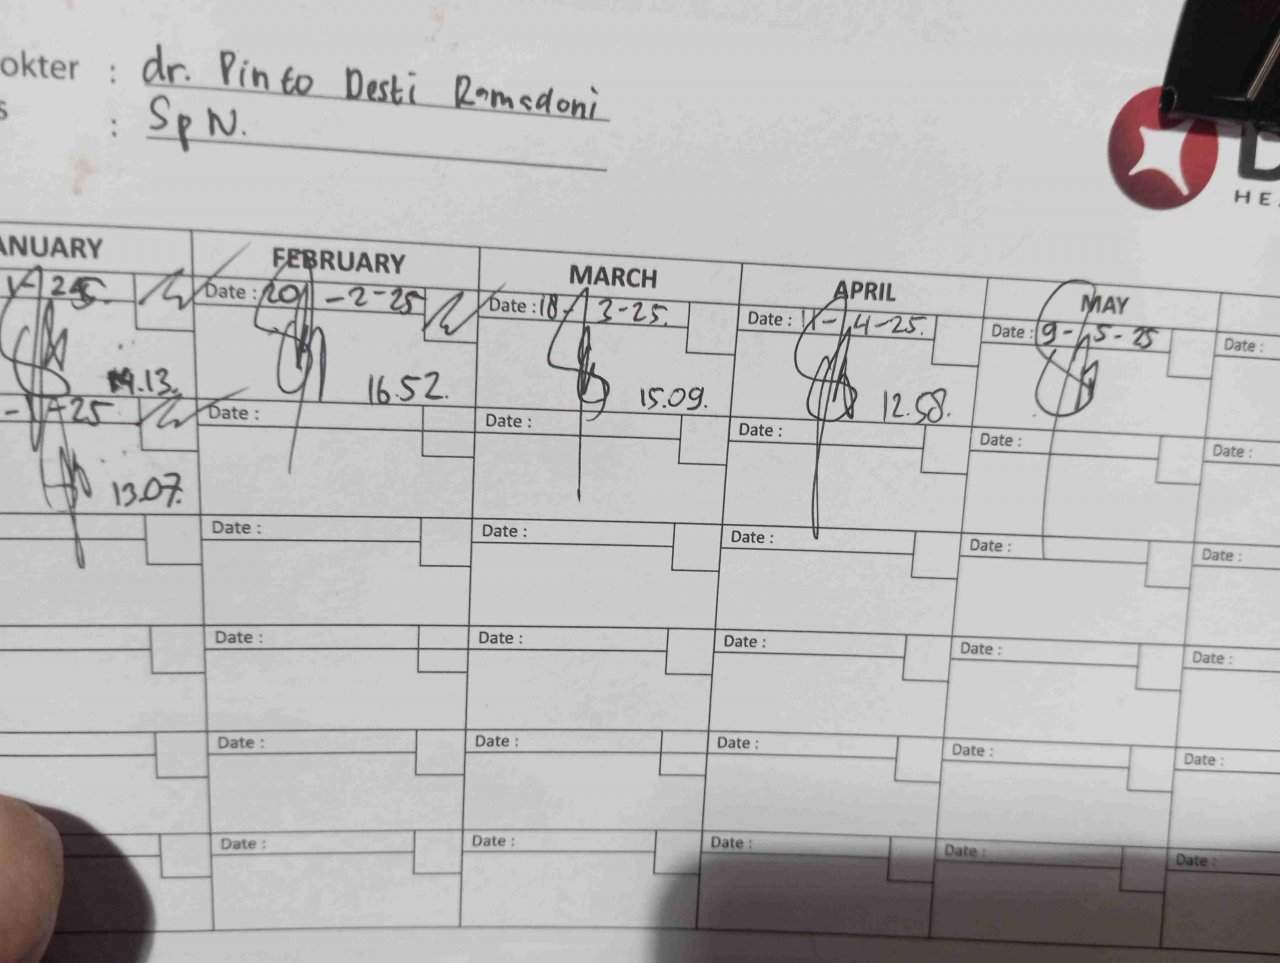 okter : dr. Pinto Desti Ramadoni
s : Sp N.
D
HEA
ANUARY FEBRUARY MARCH APRIL MAY
25. Date : 20 -2-25 Date : 18- 3-25. Date : 11- 4-25. Date : 9- 5-25 Date :
14.13. 16.52. 15.09. 12.58.
-25 Date : Date : Date : Date : Date :
13.07.
Date : Date : Date : Date : Date :
Date : Date : Date : Date : Date :
Date : Date : Date : Date : Date :
Date : Date : Date : Date : Date :